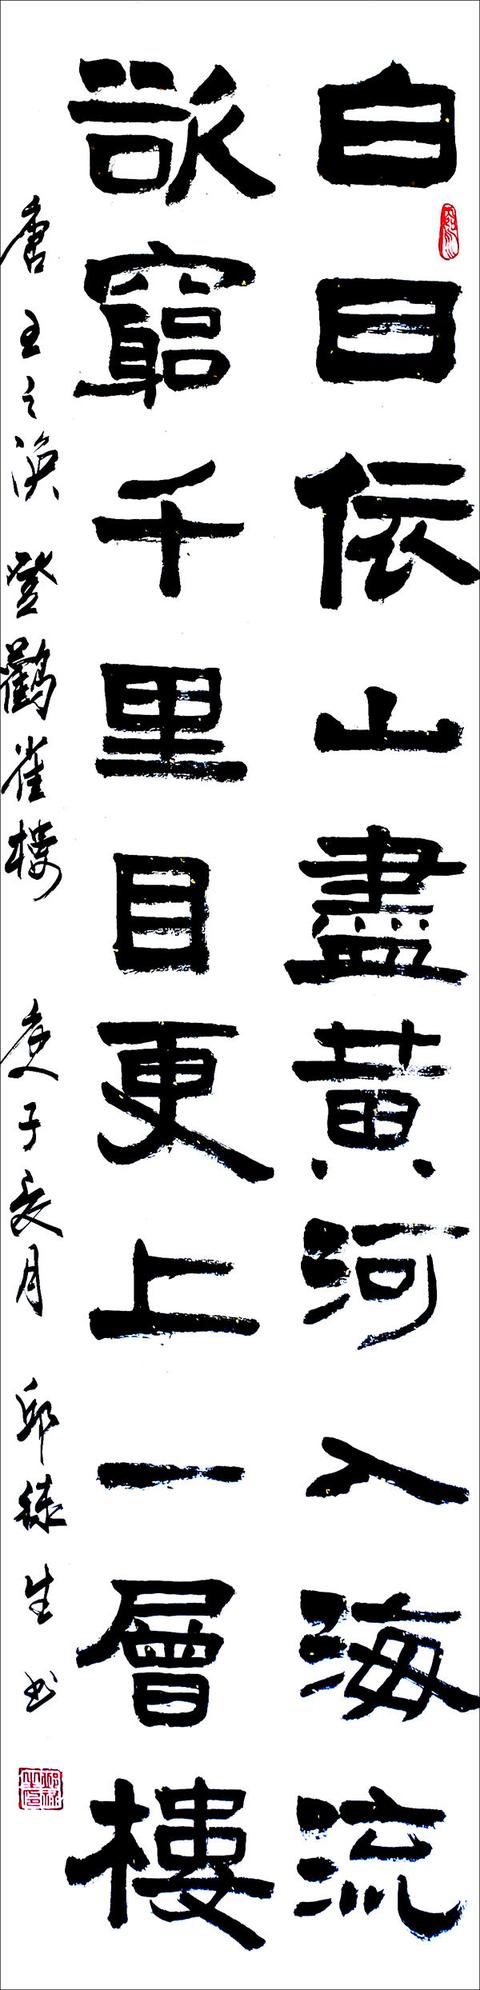 白日依山盡黄河入海流
欲窮千里目更上一層樓
唐王之渙登鸛雀楼 庚子夏月 邱禄生书